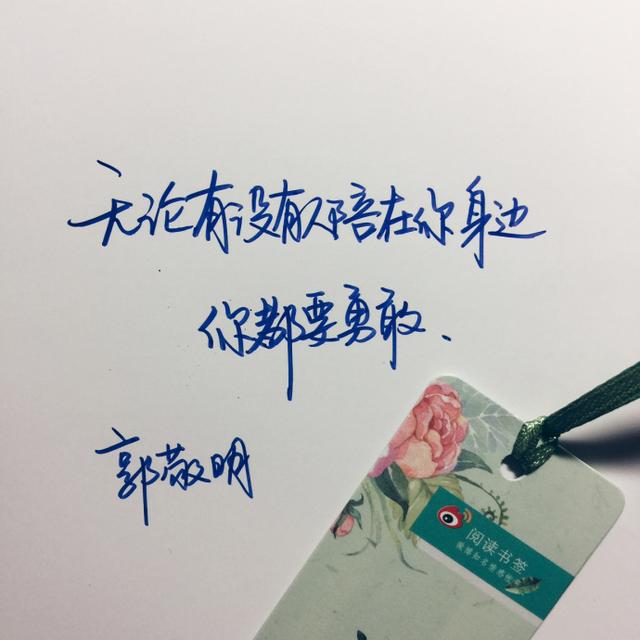 无论有没有人陪在你身边
你都要勇敢.
郭敬明
阅读书签